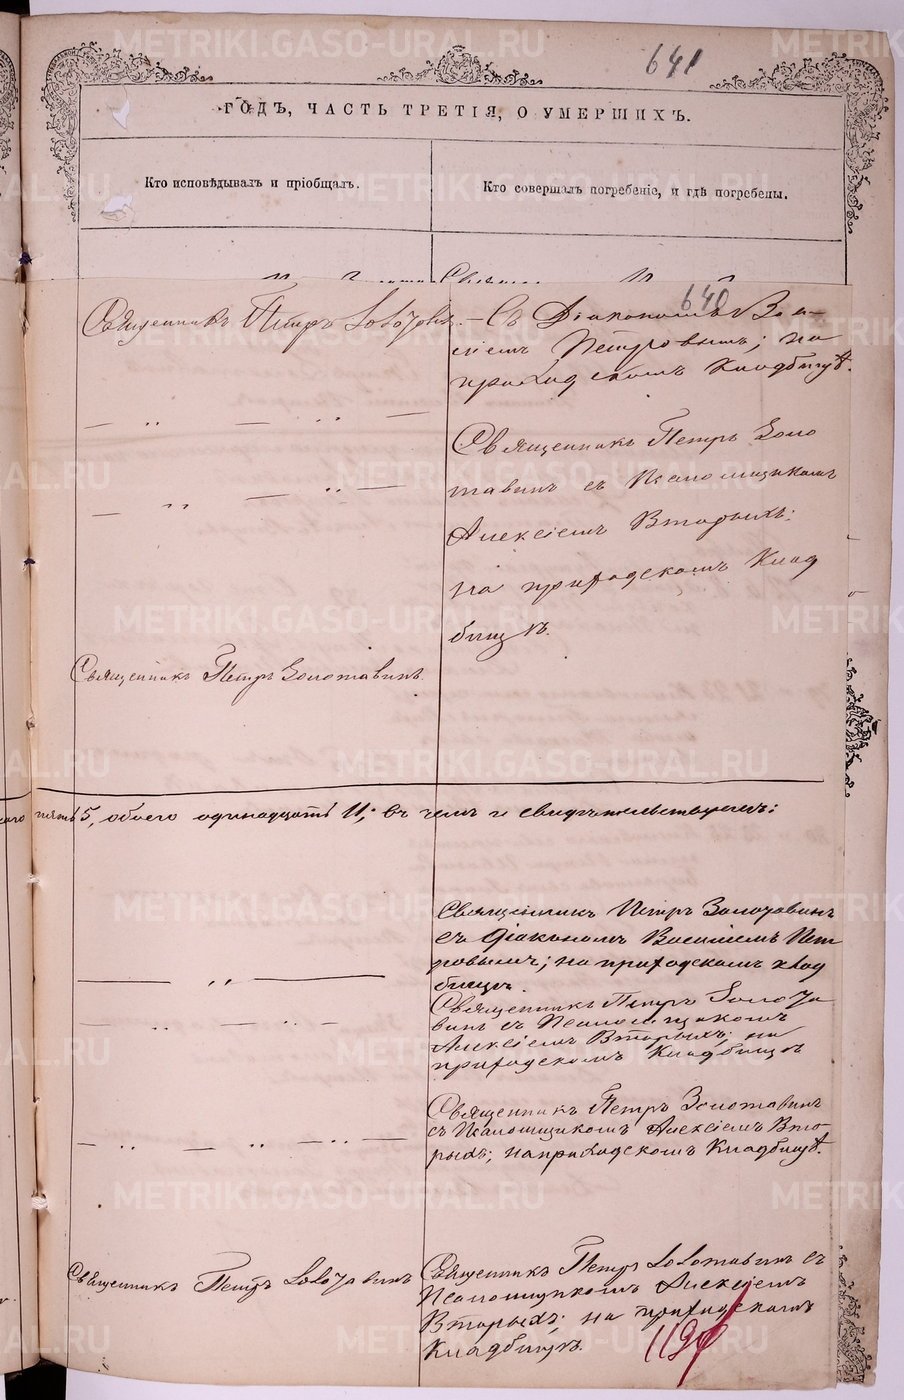 641
ГОДЪ, ЧАСТЬ ТРЕТІЯ, О УМЕРШИХЪ.
Кто исповѣдывалъ и пріобщалъ.
Кто совершалъ погребеніе, и гдѣ погребены.
640
Священникъ Петръ Золотавинъ
— Съ Діакономъ Васи-
ліемъ Петровымъ; на
приходскомъ Кладбищѣ.
— „ — „ —
Священникъ Петръ Золо
тавинъ съ Псаломщикомъ
— „ — „ —
Алексіемъ Вторыхъ;
на приходскомъ Клад
бищѣ.
Священникъ Петръ Золотавинъ.
пять 5, обоего одинадцать 11; въ чемъ и свидѣтельствуемъ:
Священникъ Петръ Золотавинъ
съ Діакономъ Василіемъ Пет
ровымъ; на приходскомъ клад
бищѣ.
— „ —
Священникъ Петръ Золота
винъ съ Псаломщикомъ
Алексіемъ Вторыхъ; на
приходскомъ Кладбищѣ
— „ — „ —
Священникъ Петръ Золотавинъ
съ Псаломщикомъ Алексіемъ Вто
рыхъ; на приходскомъ Кладбищѣ.
— „ — „ — „ —
Священникъ Петръ Золотавинъ
Священникъ Петръ Золотавинъ съ
Псаломщикомъ Алексіемъ
Вторыхъ; на приходскомъ
Кладбищѣ.
METRIKI.GASO-URAL.RU